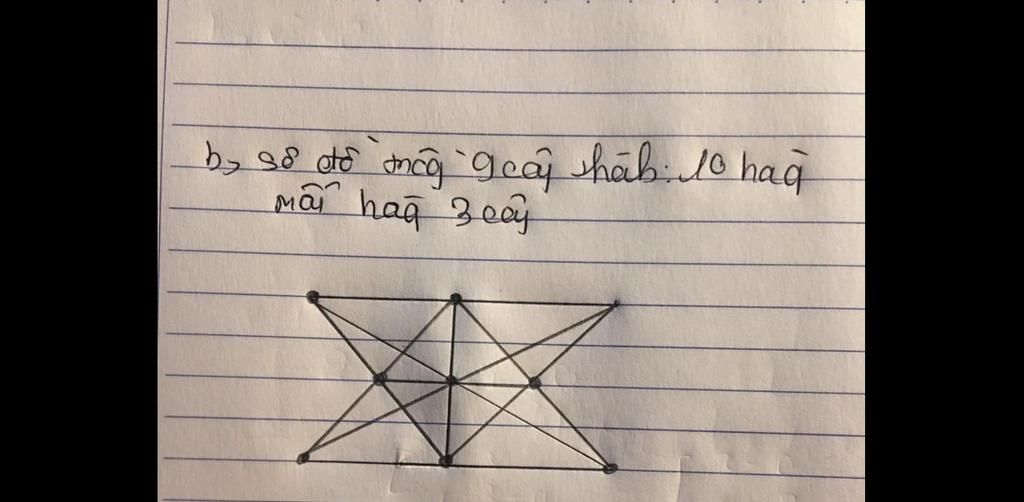 b, sơ đồ trồng 9 cây thành: 10 hàng
mỗi hàng 3 cây